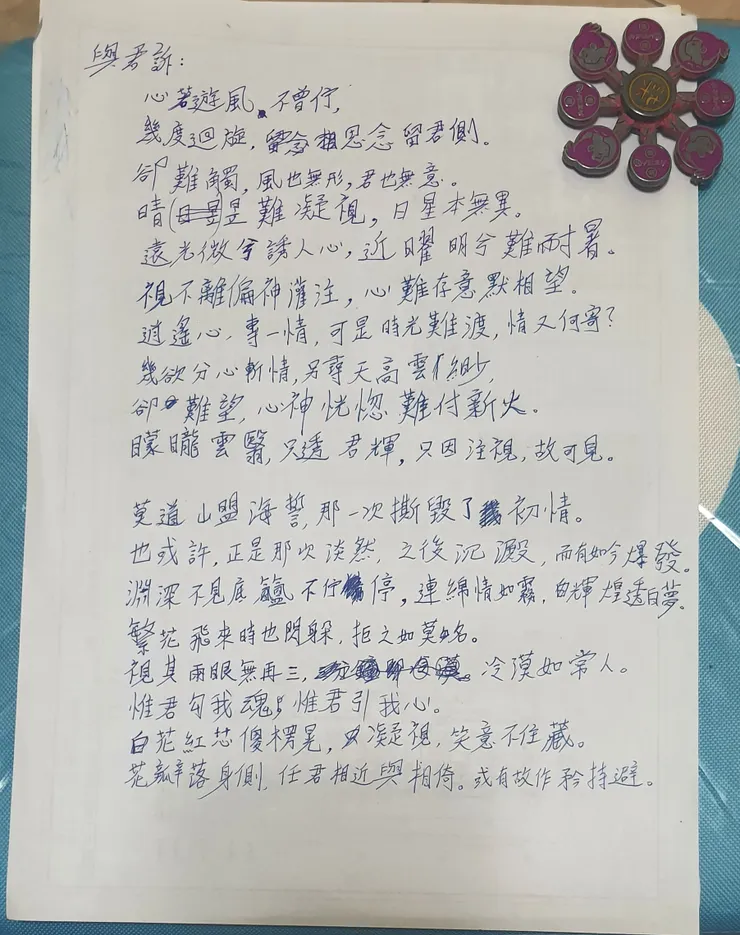 與君訴：
心若遊風、不曾佇，
幾度迴旋，相思念留君側。
卻難觸，風也無形，君也無意。
晴(昱難凝視，日星本無異。
遠光微兮誘人心，近曜明兮難耐暑。
視不離偏神灌注，心難存意默相望。
逍遙心，專一情，可是時光難渡，情又何寄？
幾欲分心斬情，另尋天高雲縹緲，
卻難望，心神恍惚難付新火。
朦朧雲翳，只透君輝，只因注視，故可見。
莫道山盟海誓，那一次撕毀了初情。
也或許，正是那次淡然，之後沉澱，而有如今爆發。
淵深不見底 不停，連綿情如霧，白輝煌透白夢。
繁花飛來時也閃躲，拒之如莫名。
視其兩眼無再三，冷漠如常人。
惟君勾我魂；惟君引我心。
白花紅芯傻楞晃，凝視，笑意不住藏。
花瓣落身側，任君相近與相倚。或有故作矜持避。